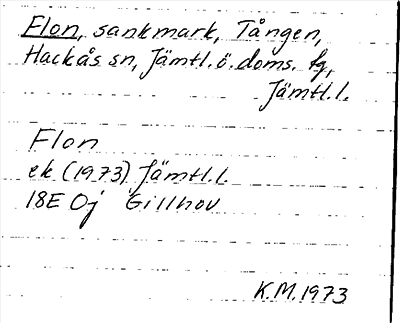 Flon, sankmark, Tången,
Hackås sn, Jämtl. ö. doms. fg,
Jämtl. l.
Flon
ek (1973) Jämtl. l.
18E 0j Gillhov
K.M. 1973